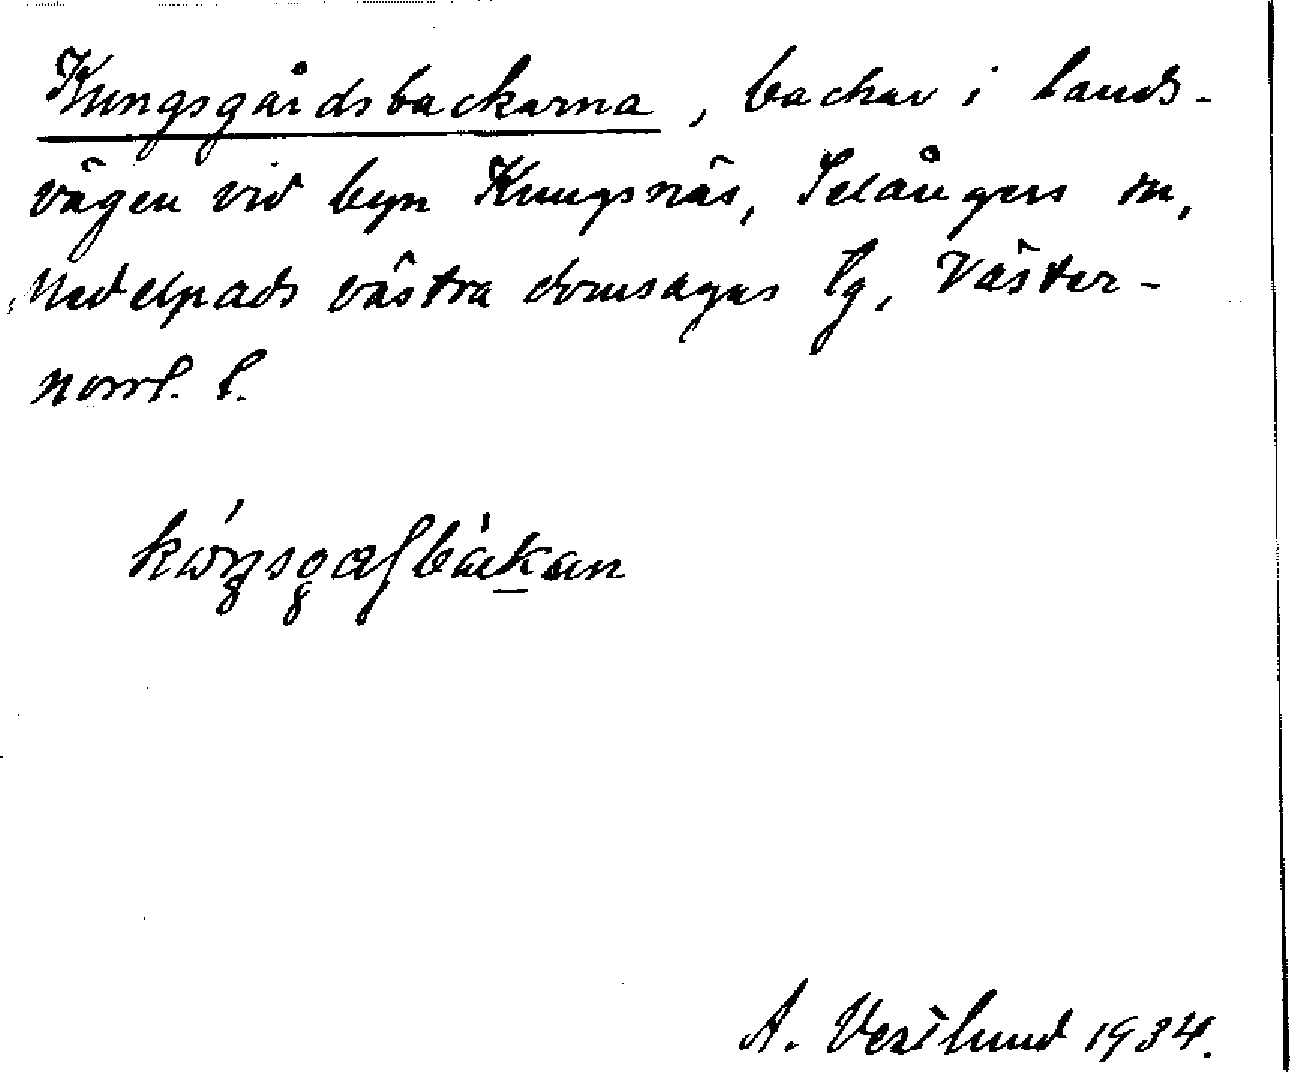 Kungsgårdsbackarna, backar i lands-
vägen vid byn Kungsnäs, Selångers sn,
Medelpads västra domsagas lg, Väster-
norrl. l.
A. Vestlund 1934.